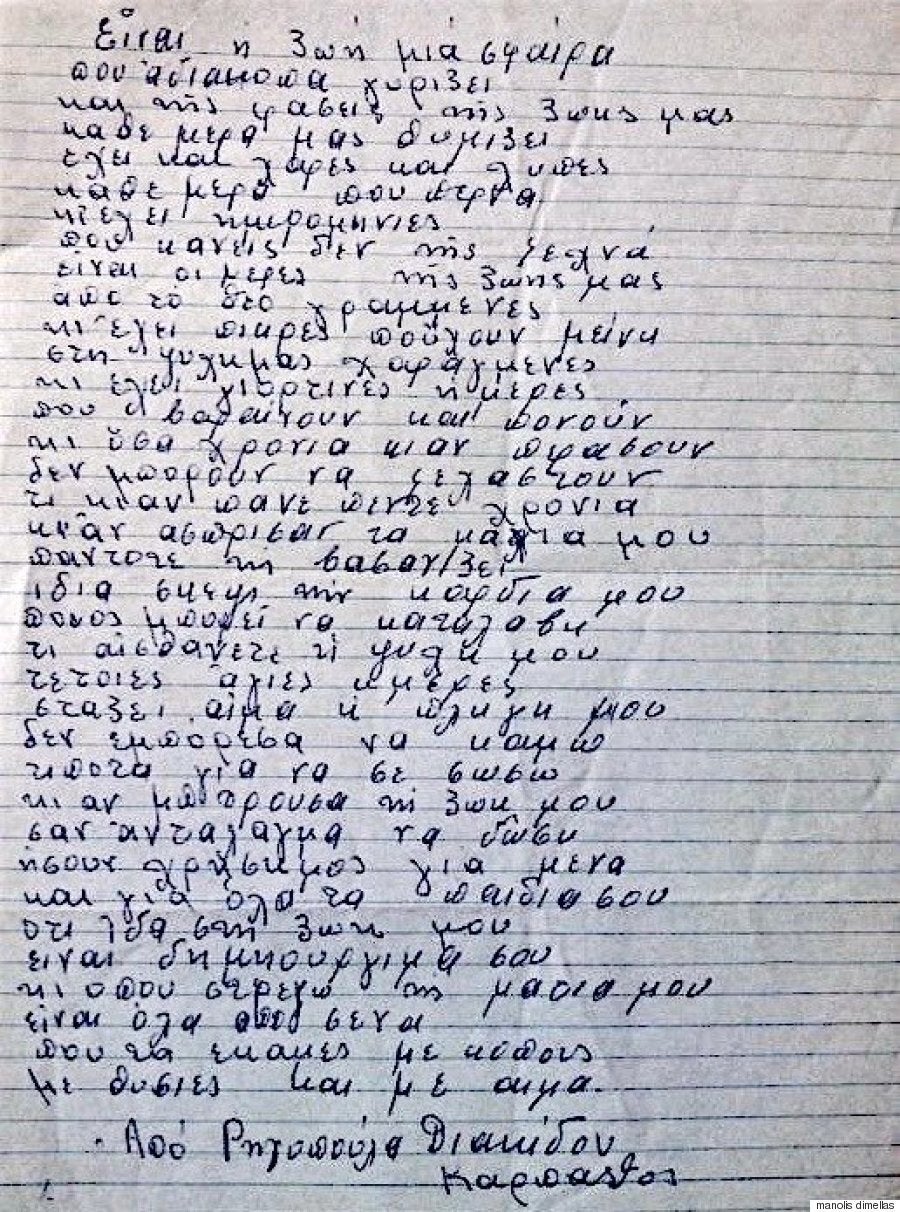 Είναι η ζωή μιά σφαίρα
που αδιακοπα γυρίζει
και της φασεις της ζωης μας
καθε μερα μας θυμιζει
εχει και χαρες και λυπες
κάθε μερα που περνα
κι εχει ημερομηνιες
που κανεις δεν της ξεχνά
είναι οι μερες της ζωής μας
άπο το θεο γραμμενες
κι έχει πικρες πούχουν μείνη
στη ψυχη μας χαράγμενες
κι εχει γιορτινές ημερες
που βαραίνουν και πονούν
κι όσα χρονια κιαν περασουν
δεν μπορουν να ξεχαστουν
τι κιαν πανε πεντε χρονια
κι άν ασπρισαν τα μαλια μου
παντοτε τη βασανίζει
ιδια σκεψη την καρδια μου
ποιος μπορεί να καταλαβη
τι αισθανετε η ψυχη μου
τετοιες άγιες ημέρες
σταζει αιμα η πληγη μου
δεν εμπορεσα να καμω
τιποτα για να σε σωσω
κι αν μπορουσα τη ζωη μου
σαν ανταλαγμα να δωσω
ήσουν χρήσημος για μενα
και για όλα τα παιδια σου
οτι στη ζωη μου
ειναι δημηουργιμα σου
κι οπου στρεψω τη ματια μου
είναι όλα απο σενα
που τα εκαμες με κοπους
με θυσιες και με αιμα.
Από Ρηγοπούλα Διακίδου
Καρπαθος
manolis dimellas